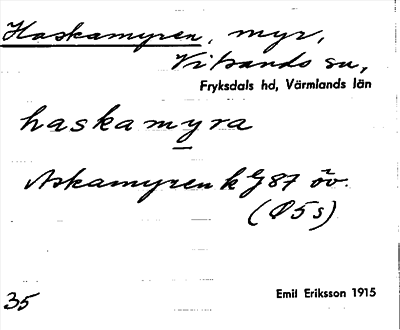 Haskamyren, myr,
Vitsands sn,
Fryksdals hd, Värmlands län
haskamyra
Askamyren k Eg 87 öv.
(Ø 5 s)
35
Emil Eriksson 1915